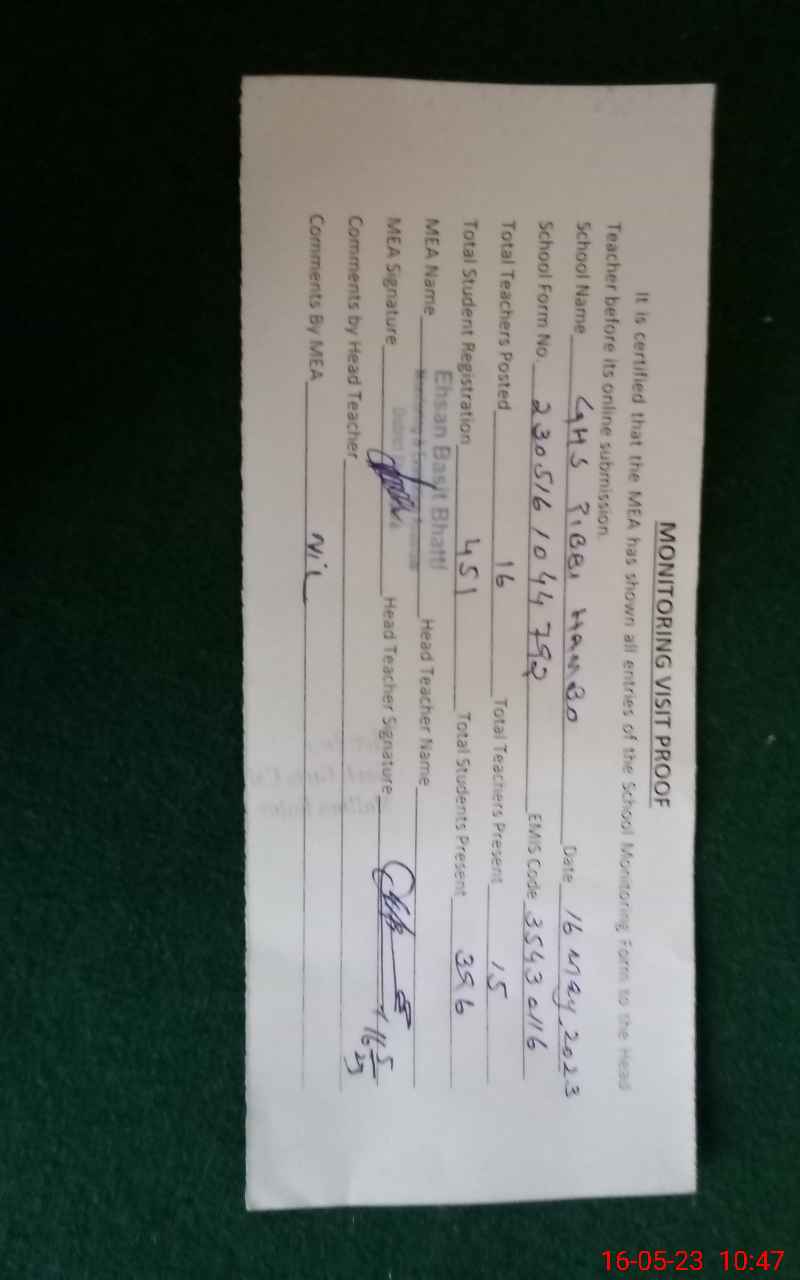 MONITORING VISIT PROOF
It is certified that the MEA has shown all entries of the School Monitoring Form to the Head
Teacher before its online submission.
School Name GHS PiBBi HamBo Date 16 may, 2023
School Form No. 230516104479 EMIS Code 35430116
Total Teachers Posted 16 Total Teachers Present 15
Total Student Registration 451 Total Students Present 396
MEA Name Ehsan Basit Bhatti Head Teacher Name
MEA Signature Head Teacher Signature 16/5/23
Comments by Head Teacher
Comments By MEA Nil
16-05-23 10:47